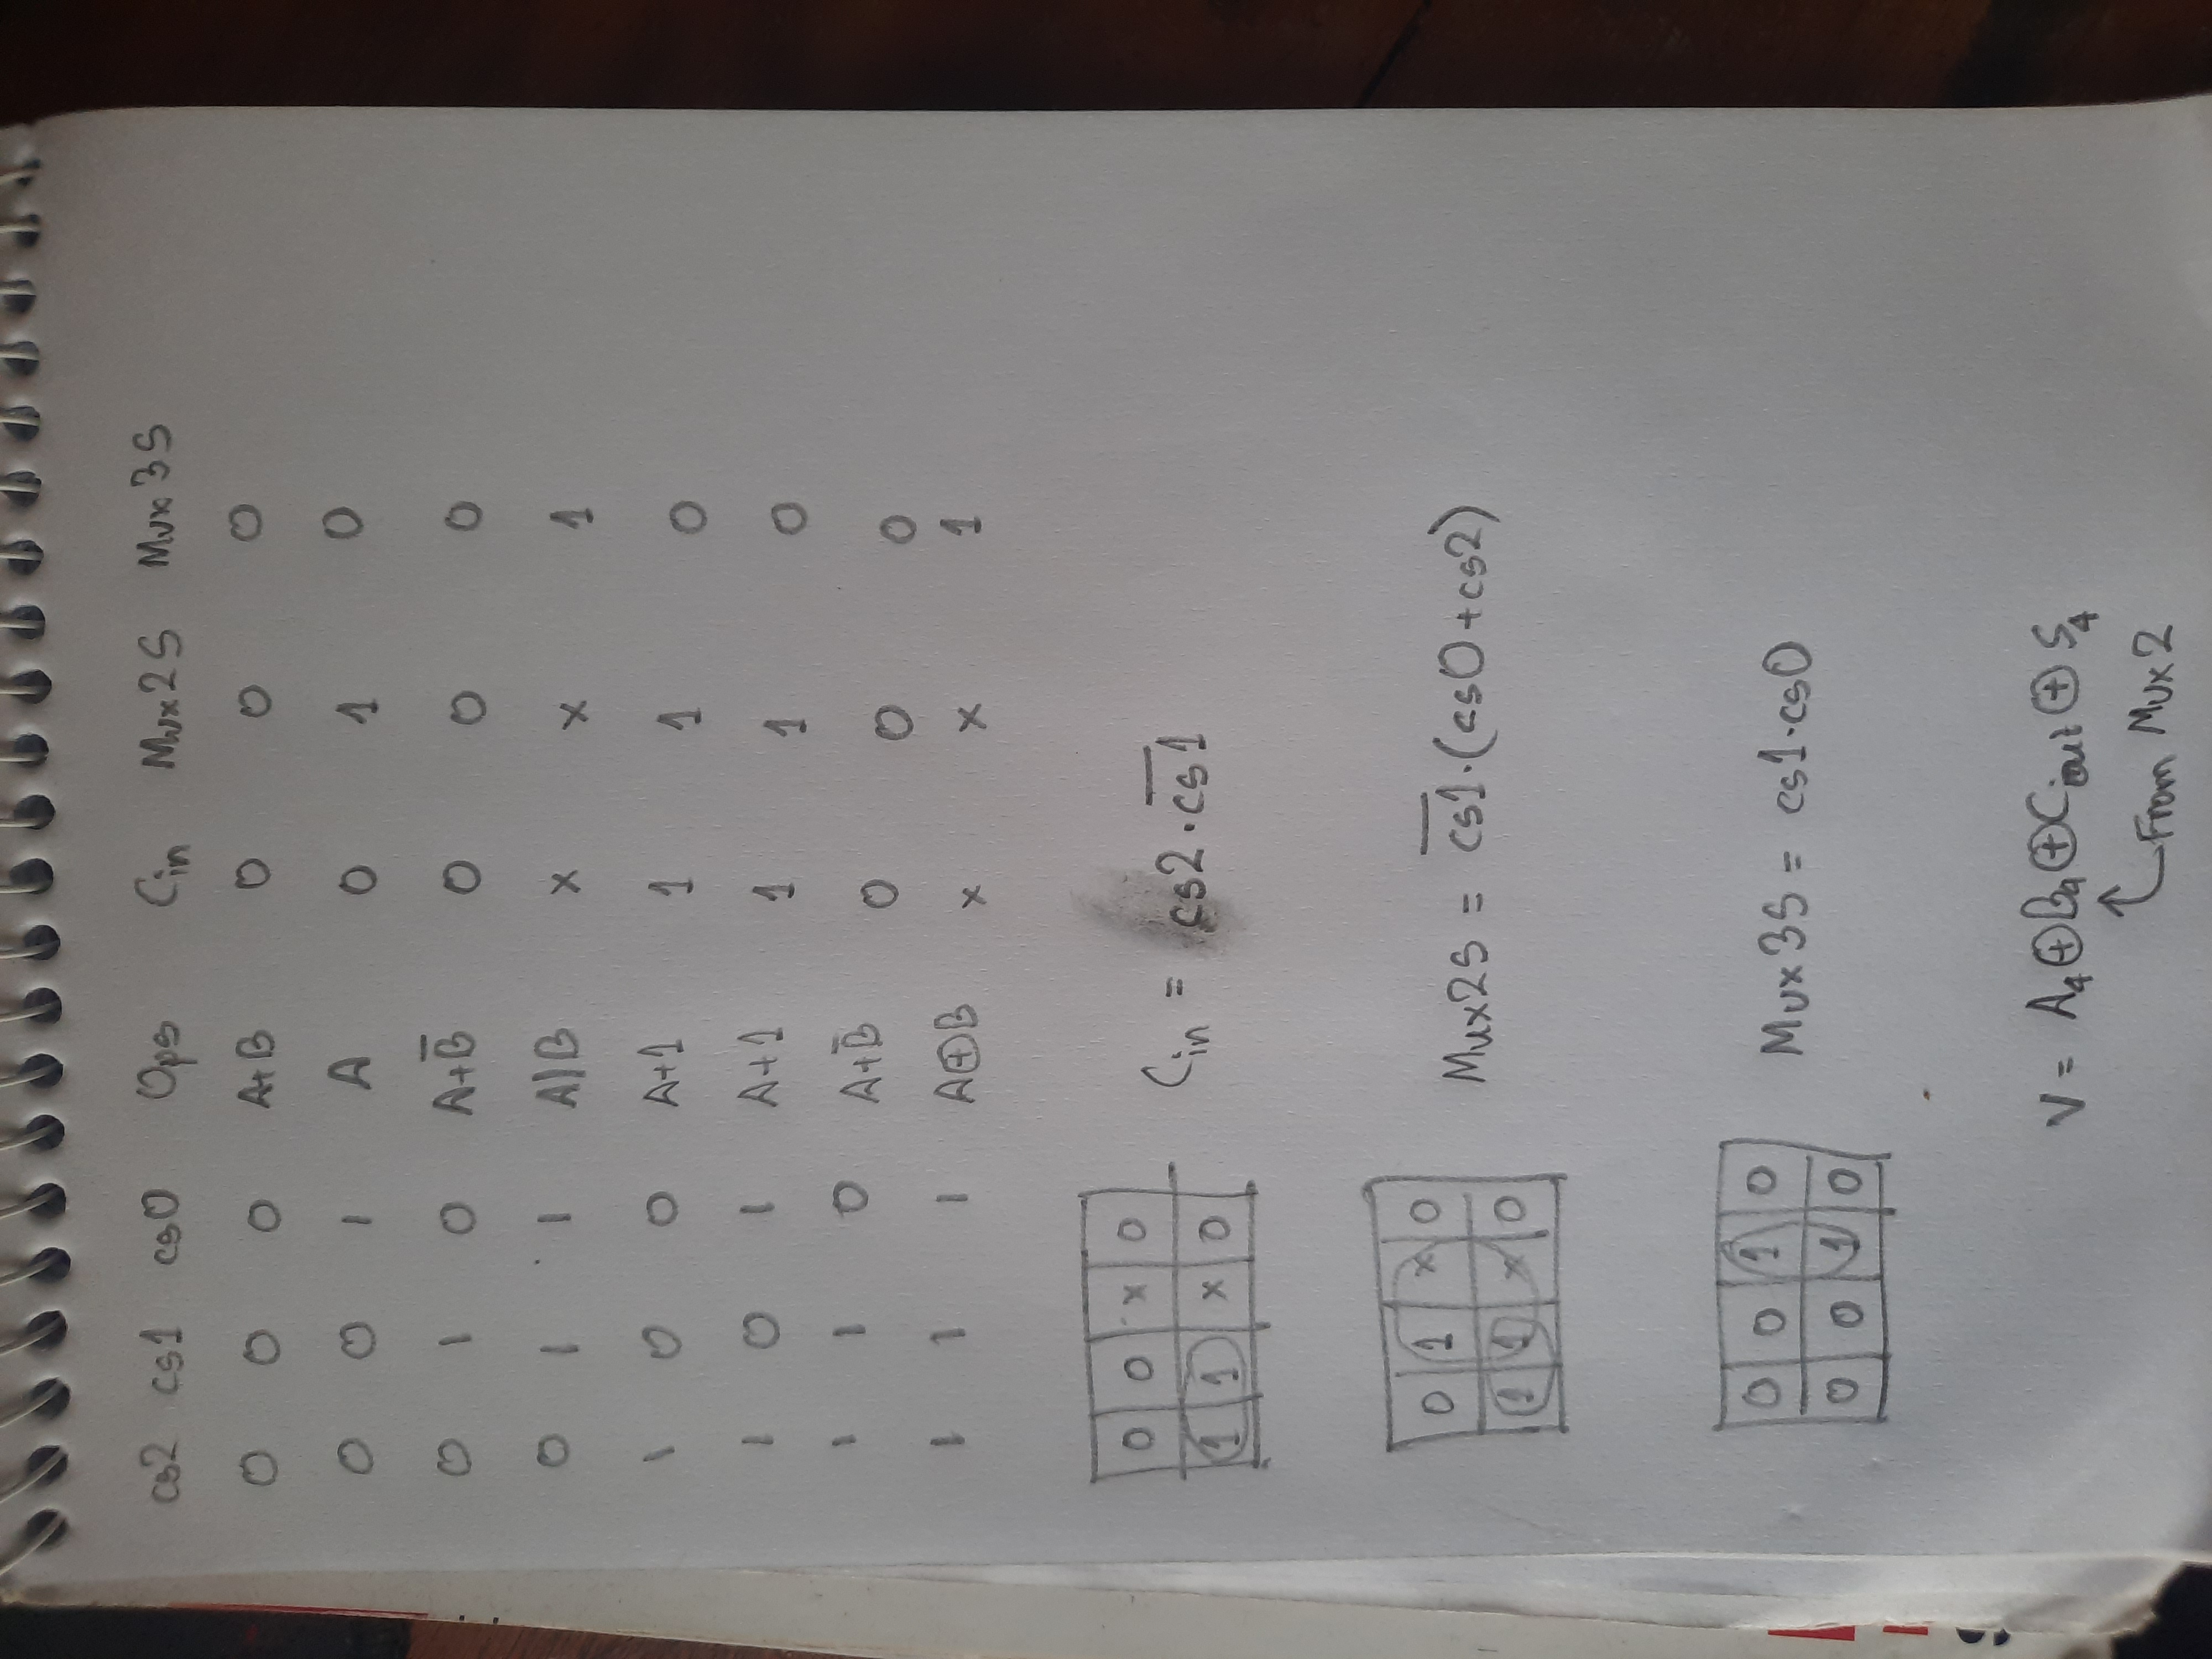 cs2 cs1 cs0 Ops Cin Mux2S Mux3S
0 0 0 A+B 0 0 0
0 0 1 A 0 1 0
0 1 0 A+B̅ 0 0 0
0 1 1 A|B x x 1
1 0 0 A+1 1 1 0
1 0 1 A+1 1 1 0
1 1 0 A+B̅ 0 0 0
1 1 1 A⊕B x x 1
0 0 x 0
1 1 x 0
Cin = cs2.c̅s̅1
0 1 x 0
1 1 x 0
Mux2S = c̅s̅1.(cs0+cs2)
0 0 1 0
0 0 1 0
Mux3S = cs1.cs0
V = A₄⊕B₄⊕Cout⊕S₄
From Mux2